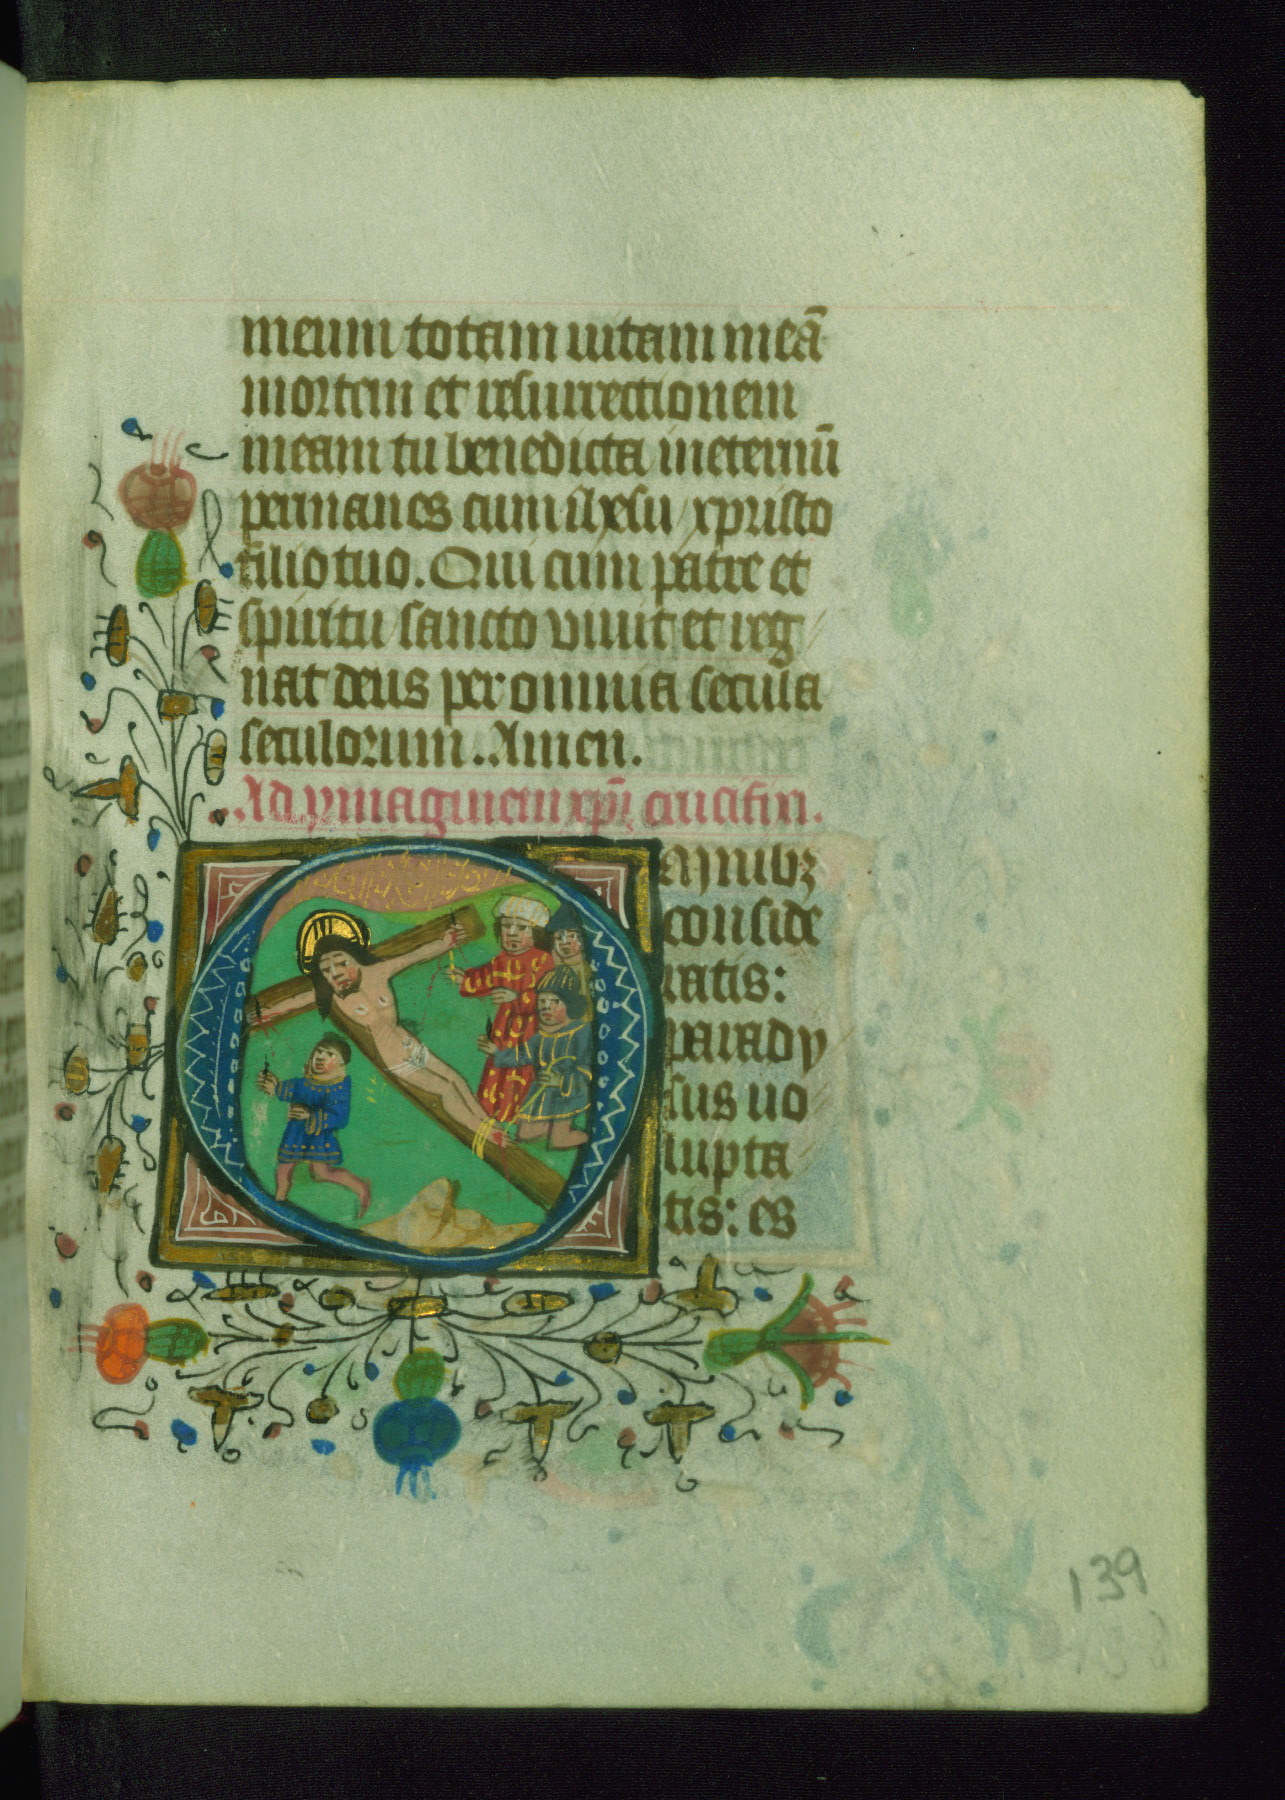 meum totam uitam meā
mortem et resurrectionem
meam tu benedicta ineternū
permanes cum ihesu xpristo
filio tuo. Qui cum patre et
spiritu sancto viuit et reg
nat deus per omnia secula
seculorum. Amen.
Ad ymaginem xpī crucifixi.
Omnibꝫ
conside
ratis:
parady
sus uo
lupta
tis: es
139
138